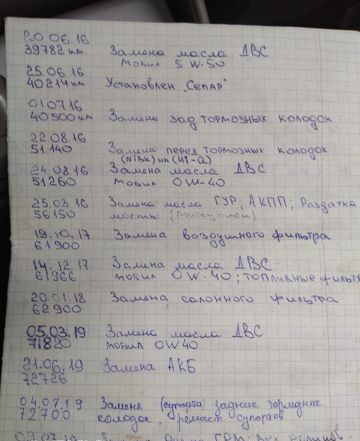 20.06.16
39782 км. Замена масла ДВС
мобил 5W-50
25.06.16
40214 км Установлен "Сепар"
01.07.16
40500 км Замена зад тормозных колодок
22.08.16
51140 Замена перед тормозных колодок
(NiBK) на (HI-Q)
24.08.16 Замена масла ДВС
51260 мобил 0W-40
25.03.16 Замена масла ГУР, АКПП; Раздатка
56150 мосты (Мицубиси)
19.10.17 Замена воздушного фильтра
61900
14.12.17 Замена масла ДВС
61966 мобил 0W-40; топливные фильт
20.01.18 Замена салонного фильтра
62900
05.03.19 Замена масла ДВС
71820 мобил 0W40
21.06.19 Замена АКБ
72726
04.07.19 Замена (суппорта) задние тормозные
72700 колодок, ремонт суппортов